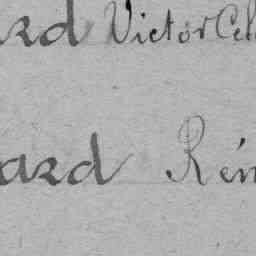 ard Victor Cel
ard Rém